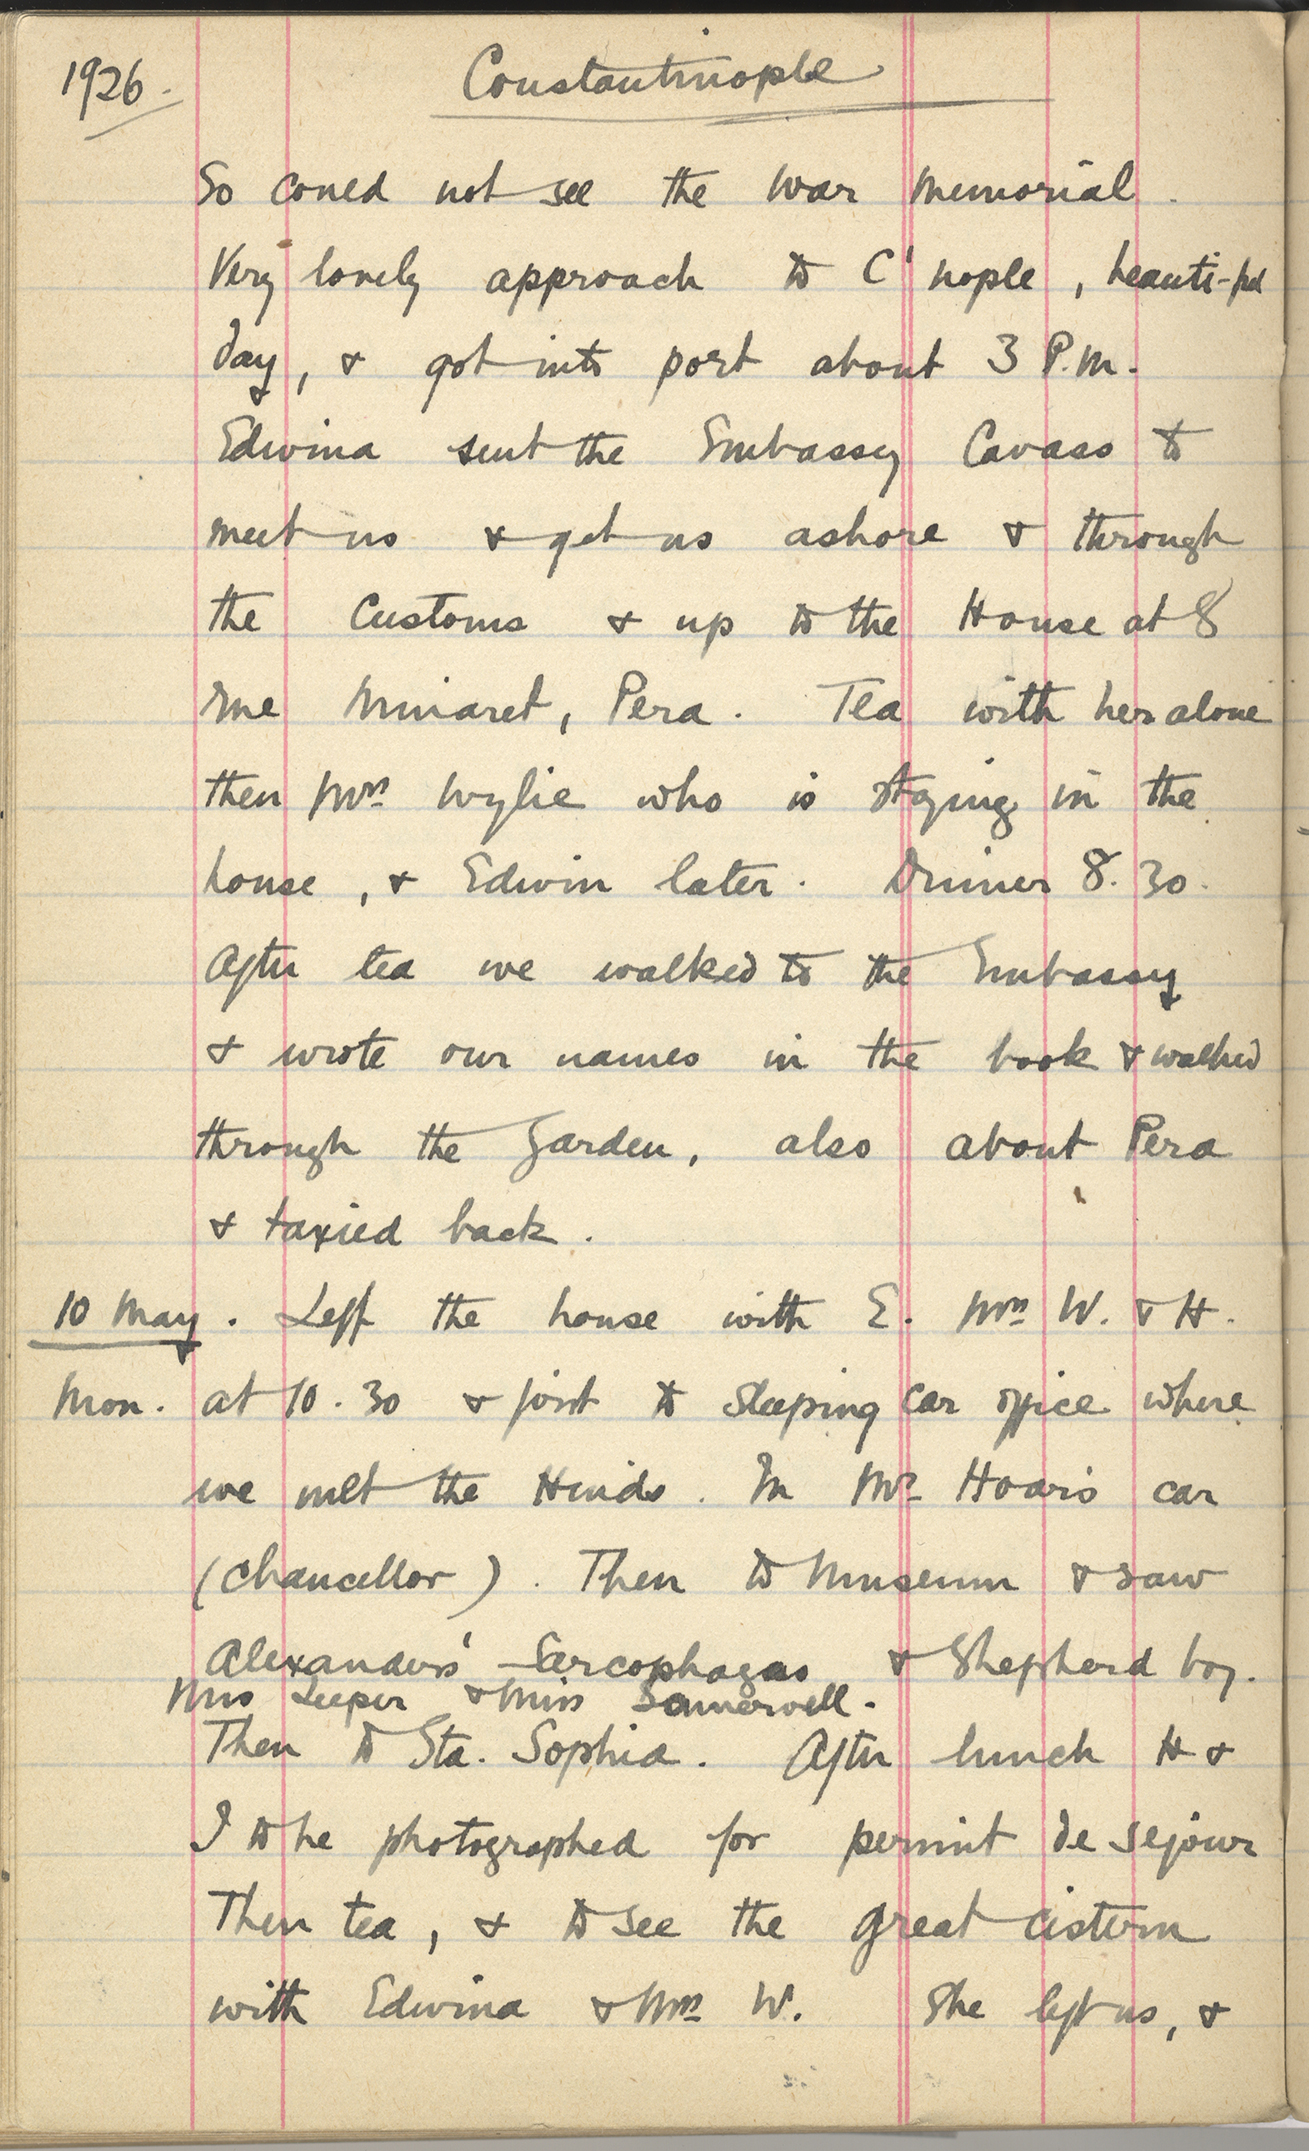 1926.
Constantinople
So could not see the War Memorial.
Very lovely approach to C'nople, beauti-ful
day, & got into port about 3 P.M.
Edwina sent the Embassy Cavass to
meet us & get us ashore & through
the Customs & up to the House at 8
rue Minaret, Pera. Tea with her alone
then Mrs Wylie who is staying in the
house, & Edwin later. Dinner 8.30.
After tea we walked to the Embassy
& wrote our names in the book & walked
through the Garden, also about Pera
& taxied back.
10 May. Left the house with E. Mrs W. & H.
Mon. at 10.30 & first to Sleeping Car office where
we met the Hinds. In Mr Hoar's car
(Chancellor). Then to Museum & saw
Alexanders' Sarcophagas & Shepherd boy.
Mrs Leeper & Miss Somervell.
Then to Sta. Sophia. After lunch H &
I to be photographed for permit de sejour
Then tea, & to see the great cistern
with Edwina & Mrs W. She left us, &